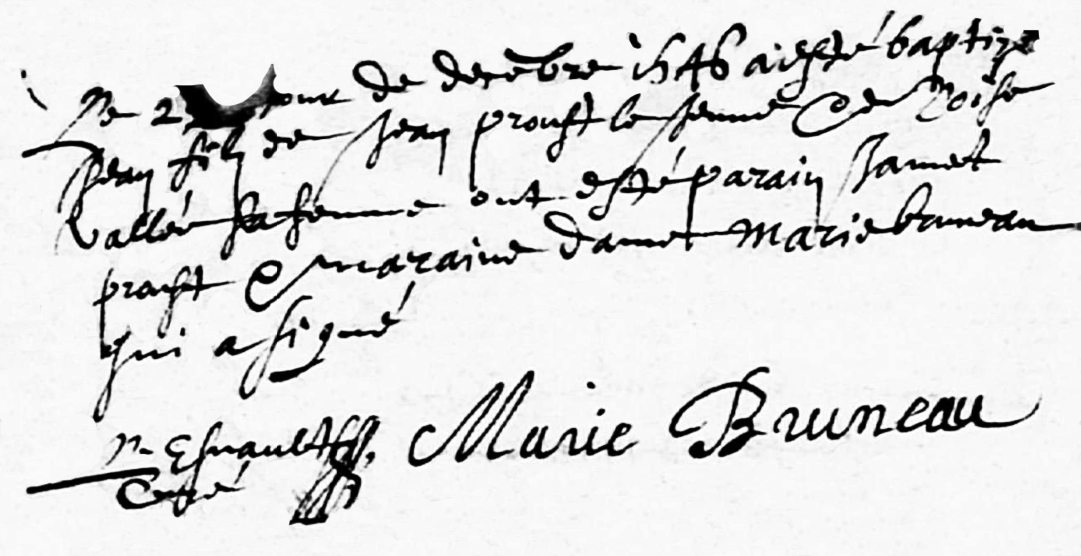 Le 2 jour de decēbre 1646 a esté baptizé
Jean filz de Jean proust le Jeune & de
vallée sa femme ont esté parain Jamet
proust & maraine dame Marie bruneau
qui a signé
Marie Bruneau
Curé